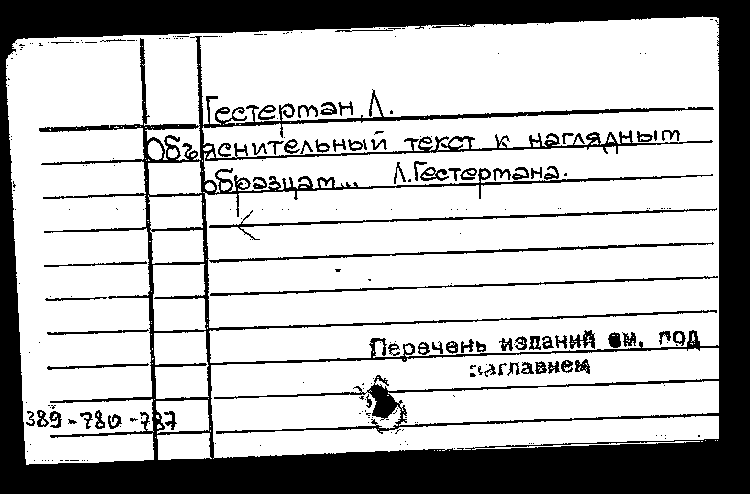 Гестерман, Л.
Объяснительный текст к наглядным
образцам... Л.Гестермана.
Перечень изданий см. под
заглавием
389-780-787